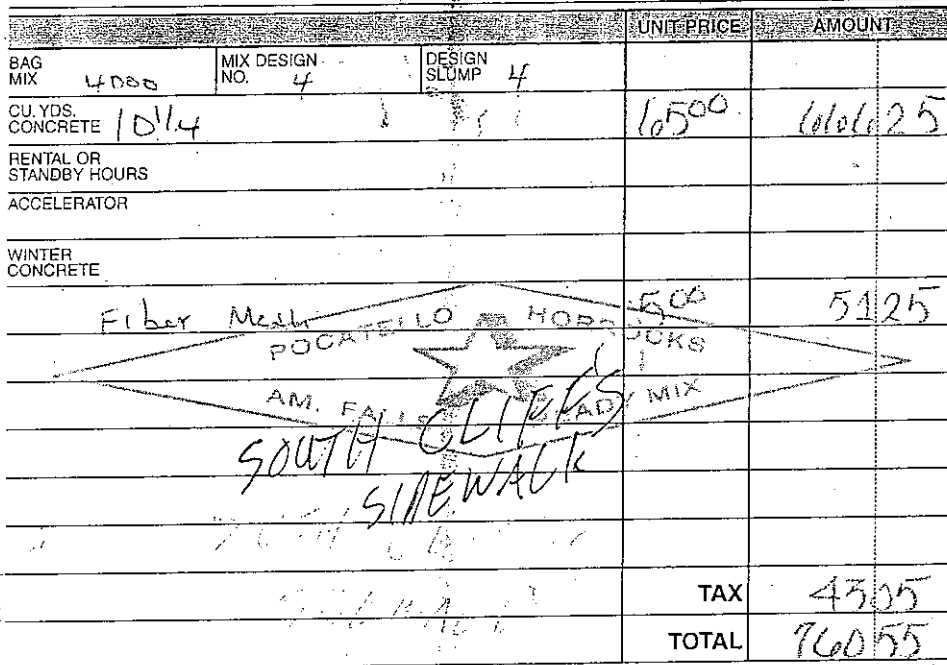 UNIT PRICE AMOUNT
BAG MIX 4000 MIX DESIGN NO. 4 DESIGN SLUMP 4
CU. YDS. CONCRETE 10 1/4 65 00 666 25
RENTAL OR STANDBY HOURS
ACCELERATOR
WINTER CONCRETE
Fiber Mesh 5 00 51 25
POCATELLO HORROCKS
AM. FALLS READY MIX
SOUTH CLIFFS
SIDEWALK
TAX 43 05
TOTAL 760 55